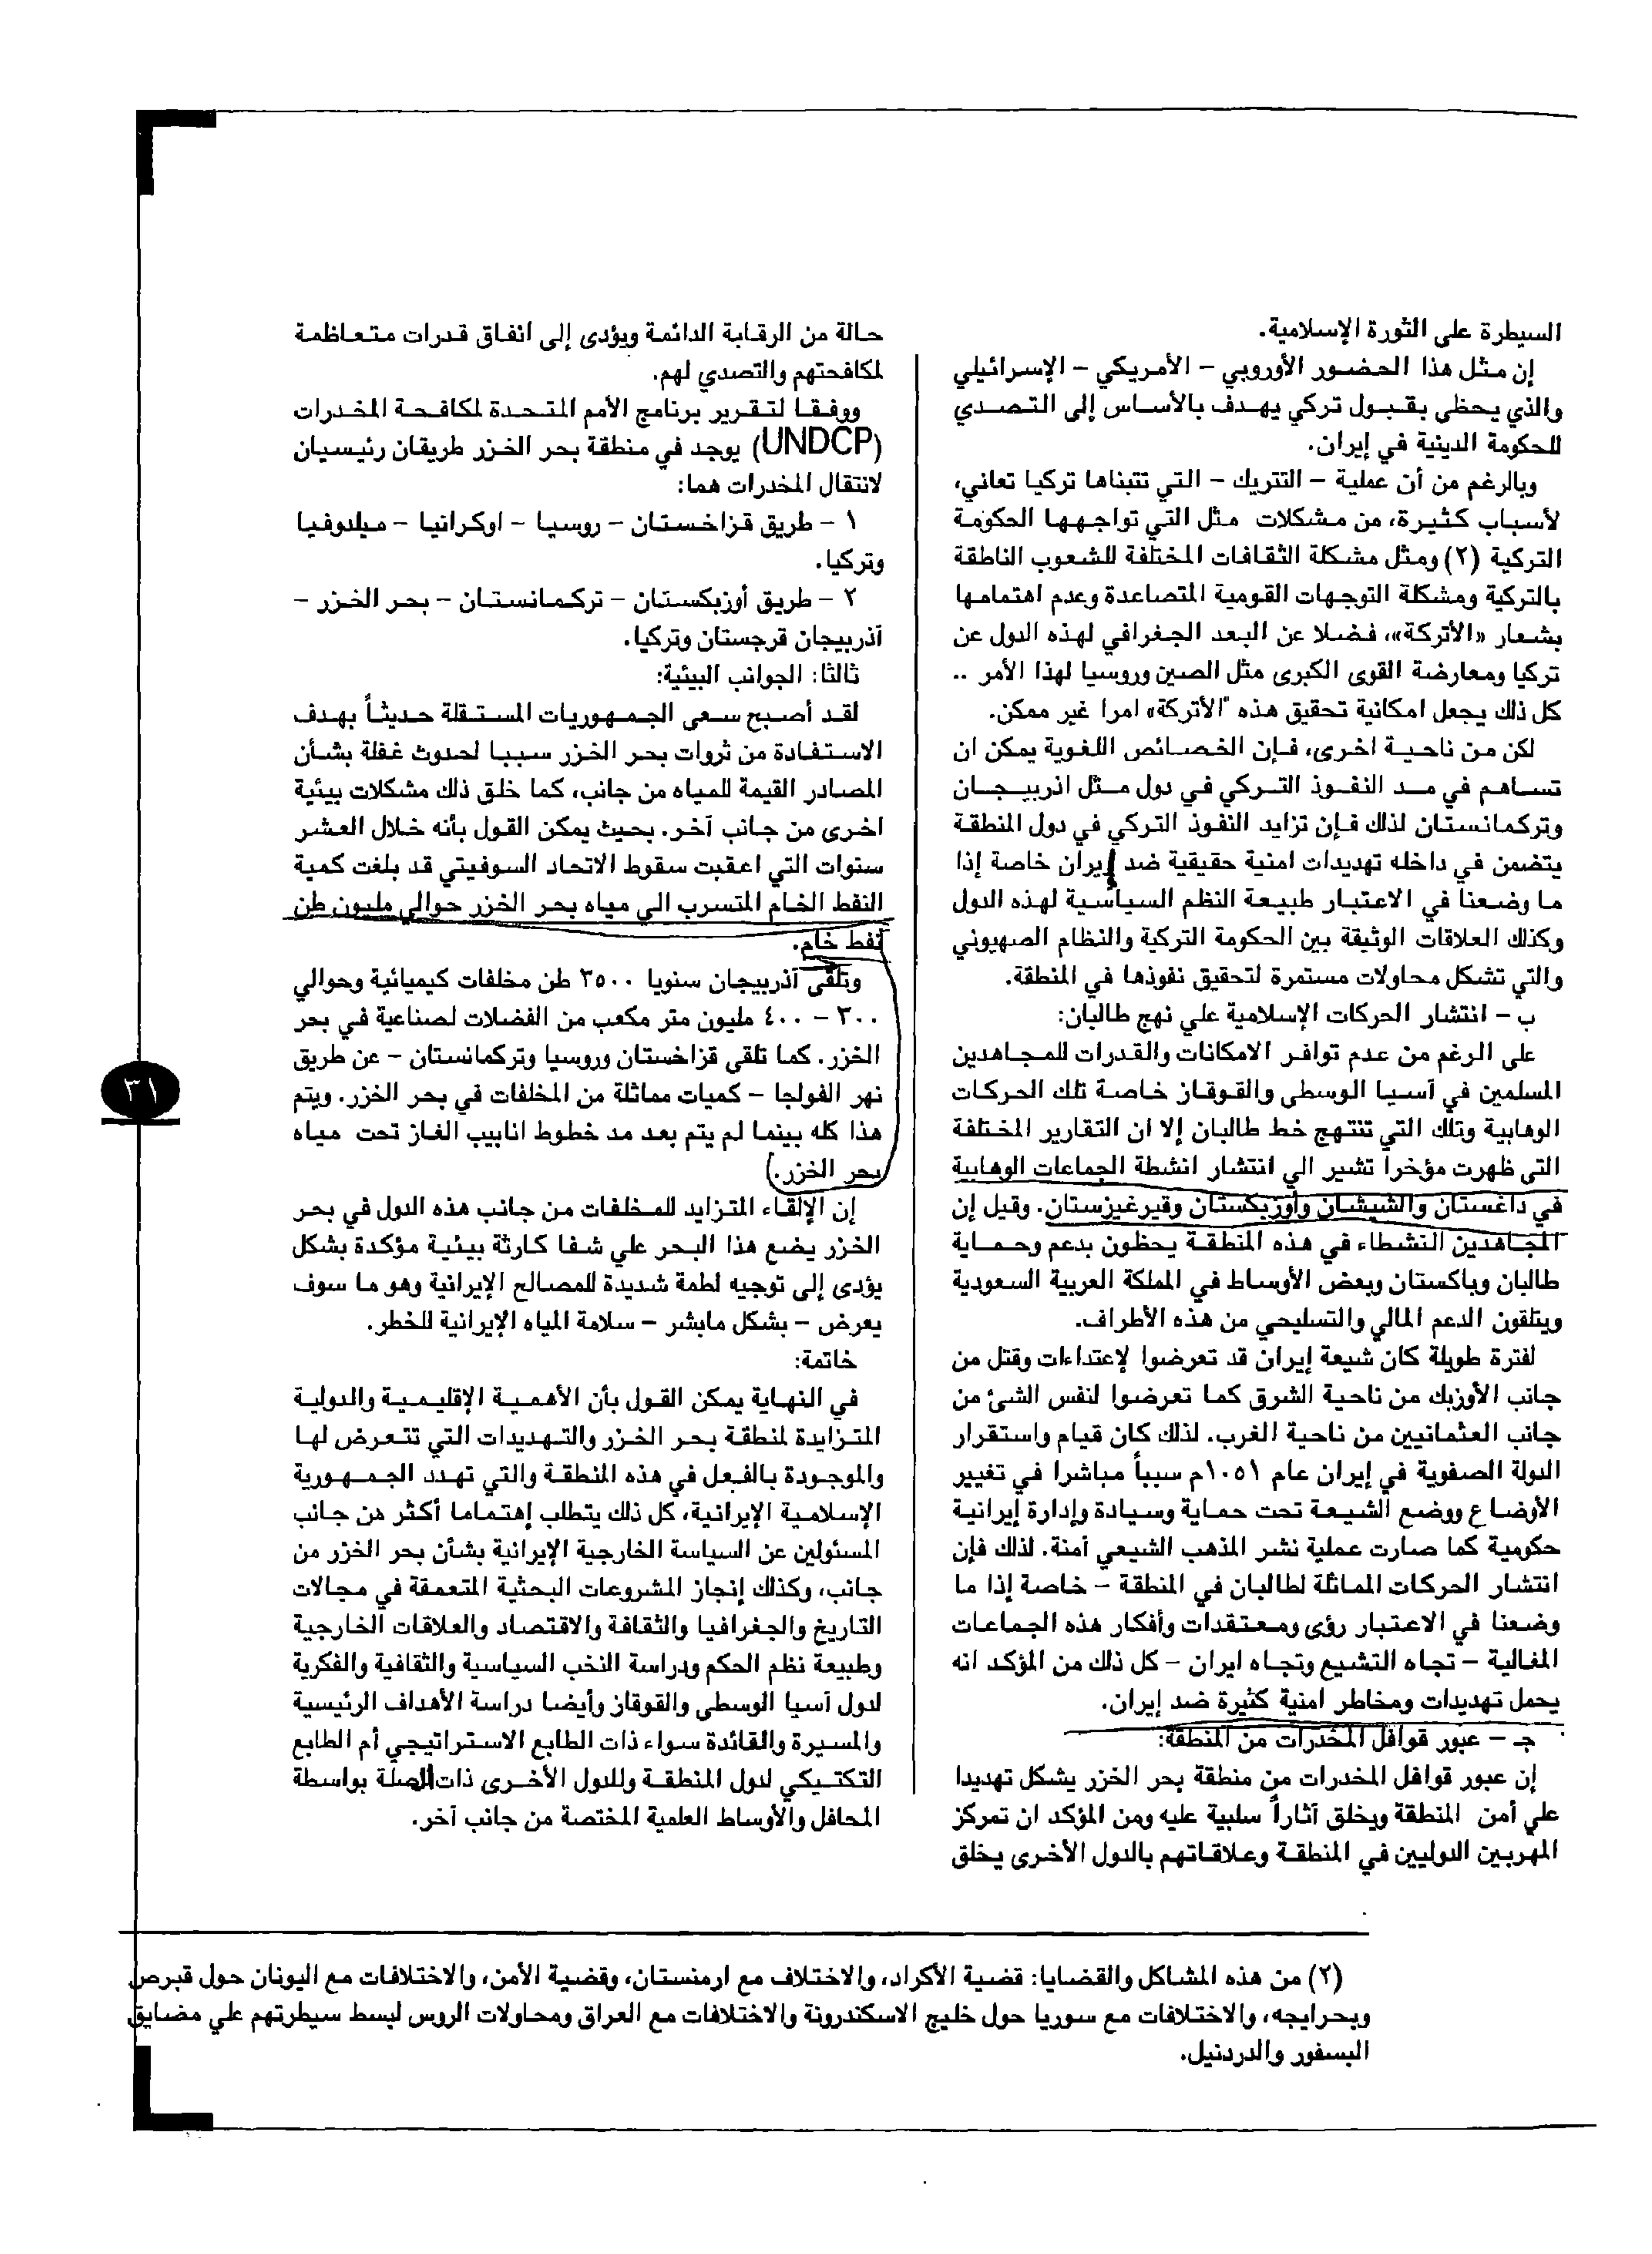 السيطرة على الثورة الإسلامية.
إن مثل هذا الحضور الأوروبي - الأمريكي - الإسرائيلي
والذي يحظى بقبول تركي يهدف بالأساس إلى التصدي
للحكومة الدينية في إيران.
وبالرغم من أن عملية - التتريك - التي تتبناها تركيا تعاني،
لأسباب كثيرة، من مشكلات مثل التي تواجهها الحكومة
التركية (٢) ومثل مشكلة الثقافات المختلفة للشعوب الناطقة
بالتركية ومشكلة التوجهات القومية المتصاعدة وعدم اهتمامها
بشعار «الأتركة»، فضلا عن البعد الجغرافي لهذه الدول عن
تركيا ومعارضة القوى الكبرى مثل الصين وروسيا لهذا الأمر ..
كل ذلك يجعل امكانية تحقيق هذه "الأتركة» امرا غير ممكن.
لكن من ناحية اخرى، فإن الخصائص اللغوية يمكن ان
تساهم في مد النفوذ التركي في دول مثل اذربيجان
وتركمانستان لذلك فإن تزايد النفوذ التركي في دول المنطقة
يتضمن في داخله تهديدات امنية حقيقية ضد إيران خاصة إذا
ما وضعنا في الاعتبار طبيعة النظم السياسية لهذه الدول
وكذلك العلاقات الوثيقة بين الحكومة التركية والنظام الصهيوني
والتي تشكل محاولات مستمرة لتحقيق نفوذها في المنطقة.
ب - انتشار الحركات الإسلامية علي نهج طالبان:
على الرغم من عدم توافر الامكانات والقدرات للمجاهدين
المسلمين في آسيا الوسطى والقوقاز خاصة تلك الحركات
الوهابية وتلك التي تنتهج خط طالبان إلا ان التقارير المختلفة
التى ظهرت مؤخراً تشير الي انتشار انشطة الجماعات الوهابية
في داغستان والشيشان وأوزبكستان وقيرغيزستان. وقيل إن
المجاهدين النشطاء في هذه المنطقة يحظون بدعم وحماية
طالبان وباكستان وبعض الأوساط في المملكة العربية السعودية
ويتلقون الدعم المالي والتسليحي من هذه الأطراف.
لفترة طويلة كان شيعة إيران قد تعرضوا لإعتداءات وقتل من
جانب الأوزبك من ناحية الشرق كما تعرضوا لنفس الشئ من
جانب العثمانيين من ناحية الغرب. لذلك كان قيام واستقرار
الدولة الصفوية في إيران عام ١٠٥١م سبباً مباشرا في تغيير
الأوضاع ووضع الشيعة تحت حماية وسيادة وإدارة إيرانية
حكومية كما صارت عملية نشر المذهب الشيعي آمنة. لذلك فإن
انتشار الحركات المماثلة لطالبان في المنطقة - خاصة إذا ما
وضعنا في الاعتبار رؤى ومعتقدات وأفكار هذه الجماعات
المغالية - تجاه التشيع وتجاه ايران - كل ذلك من المؤكد انه
يحمل تهديدات ومخاطر امنية كثيرة ضد إيران.
جـ - عبور قوافل المخدرات من المنطقة:
إن عبور قوافل المخدرات من منطقة بحر الخزر يشكل تهديدا
علي أمن المنطقة ويخلق آثاراً سلبية عليه ومن المؤكد ان تمركز
المهربين الدوليين في المنطقة وعلاقاتهم بالدول الأخرى يخلق
حالة من الرقابة الدائمة ويؤدى إلى انفاق قدرات متعاظمة
لمكافحتهم والتصدي لهم.
ووفقا لتقرير برنامج الأمم المتحدة لمكافحة المخدرات
(UNDCP) يوجد في منطقة بحر الخزر طريقان رئيسيان
لانتقال المخدرات هما:
١ - طريق قزاخستان - روسيا - اوكرانيا - ميلدوفيا
وتركيا.
٢ - طريق أوزبكستان - تركمانستان - بحر الخزر -
آذربيجان قرجستان وتركيا.
ثالثا: الجوانب البيئية:
لقد أصبح سعى الجمهوريات المستقلة حديثاً بهدف
الاستفادة من ثروات بحر الخزر سببا لحدوث غفلة بشأن
المصادر القيمة للمياه من جانب، كما خلق ذلك مشكلات بيئية
اخرى من جانب آخر. بحيث يمكن القول بأنه خلال العشر
سنوات التي اعقبت سقوط الاتحاد السوفيتي قد بلغت كمية
النفط الخام المتسرب الى مياه بحر الخزر حوالي مليون طن
نفط خام.
وتلقى آذربيجان سنويا ٣٥٠٠ طن مخلفات كيميائية وحوالي
٣٠٠ - ٤٠٠ مليون متر مكعب من الفضلات لصناعية في بحر
الخزر. كما تلقى قزاخستان وروسيا وتركمانستان - عن طريق
نهر الفولجا - كميات مماثلة من المخلفات في بحر الخزر. ويتم
هذا كله بينما لم يتم بعد مد خطوط انابيب الغاز تحت مياه
بحر الخزر.
إن الإلقاء المتزايد للمخلفات من جانب هذه الدول في بحر
الخزر يضع هذا البحر علي شفا كارثة بيئية مؤكدة بشكل
يؤدى إلى توجيه لطمة شديدة للمصالح الإيرانية وهو ما سوف
يعرض - بشكل مابشر - سلامة المياه الإيرانية للخطر.
خاتمة:
في النهاية يمكن القول بأن الأهمية الإقليمية والدولية
المتزايدة لمنطقة بحر الخزر والتهديدات التي تتعرض لها
والموجودة بالفعل في هذه المنطقة والتي تهدد الجمهورية
الإسلامية الإيرانية، كل ذلك يتطلب إهتماما أكثر من جانب
المسئولين عن السياسة الخارجية الإيرانية بشأن بحر الخزر من
جانب، وكذلك إنجاز المشروعات البحثية المتعمقة في مجالات
التاريخ والجغرافيا والثقافة والاقتصاد والعلاقات الخارجية
وطبيعة نظم الحكم ودراسة النخب السياسية والثقافية والفكرية
لدول آسيا الوسطى والقوقاز وأيضا دراسة الأهداف الرئيسية
والمسيرة والقائدة سواء ذات الطابع الاستراتيجي أم الطابع
التكتيكي لدول المنطقة وللدول الأخرى ذات الصلة بواسطة
المحافل والأوساط العلمية المختصة من جانب آخر.
٣١
(٢) من هذه المشاكل والقضايا: قضية الأكراد، والاختلاف مع ارمنستان، وقضية الأمن، والاختلافات مع اليونان حول قبرص
وبحرايجه، والاختلافات مع سوريا حول خليج الاسكندرونة والاختلافات مع العراق ومحاولات الروس لبسط سيطرتهم علي مضايق
البسفور والدردنيل.